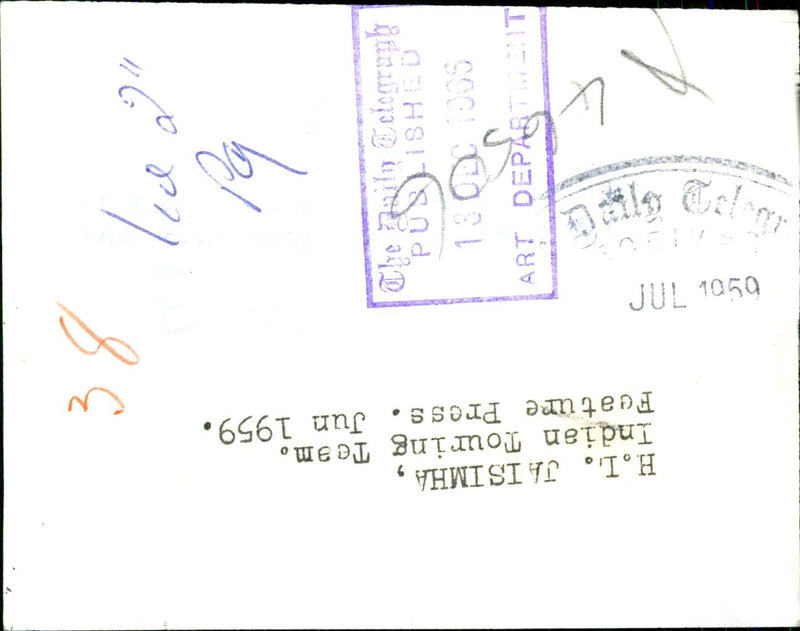 The Daily Telegraph
PUBLISHED
13 DEC 1966
ART DEPARTMENT
Daily Telegr
JUL 1959
38
H.L. JAISIMHA,
Indian Touring Team.
Feature Press. Jun 1959.